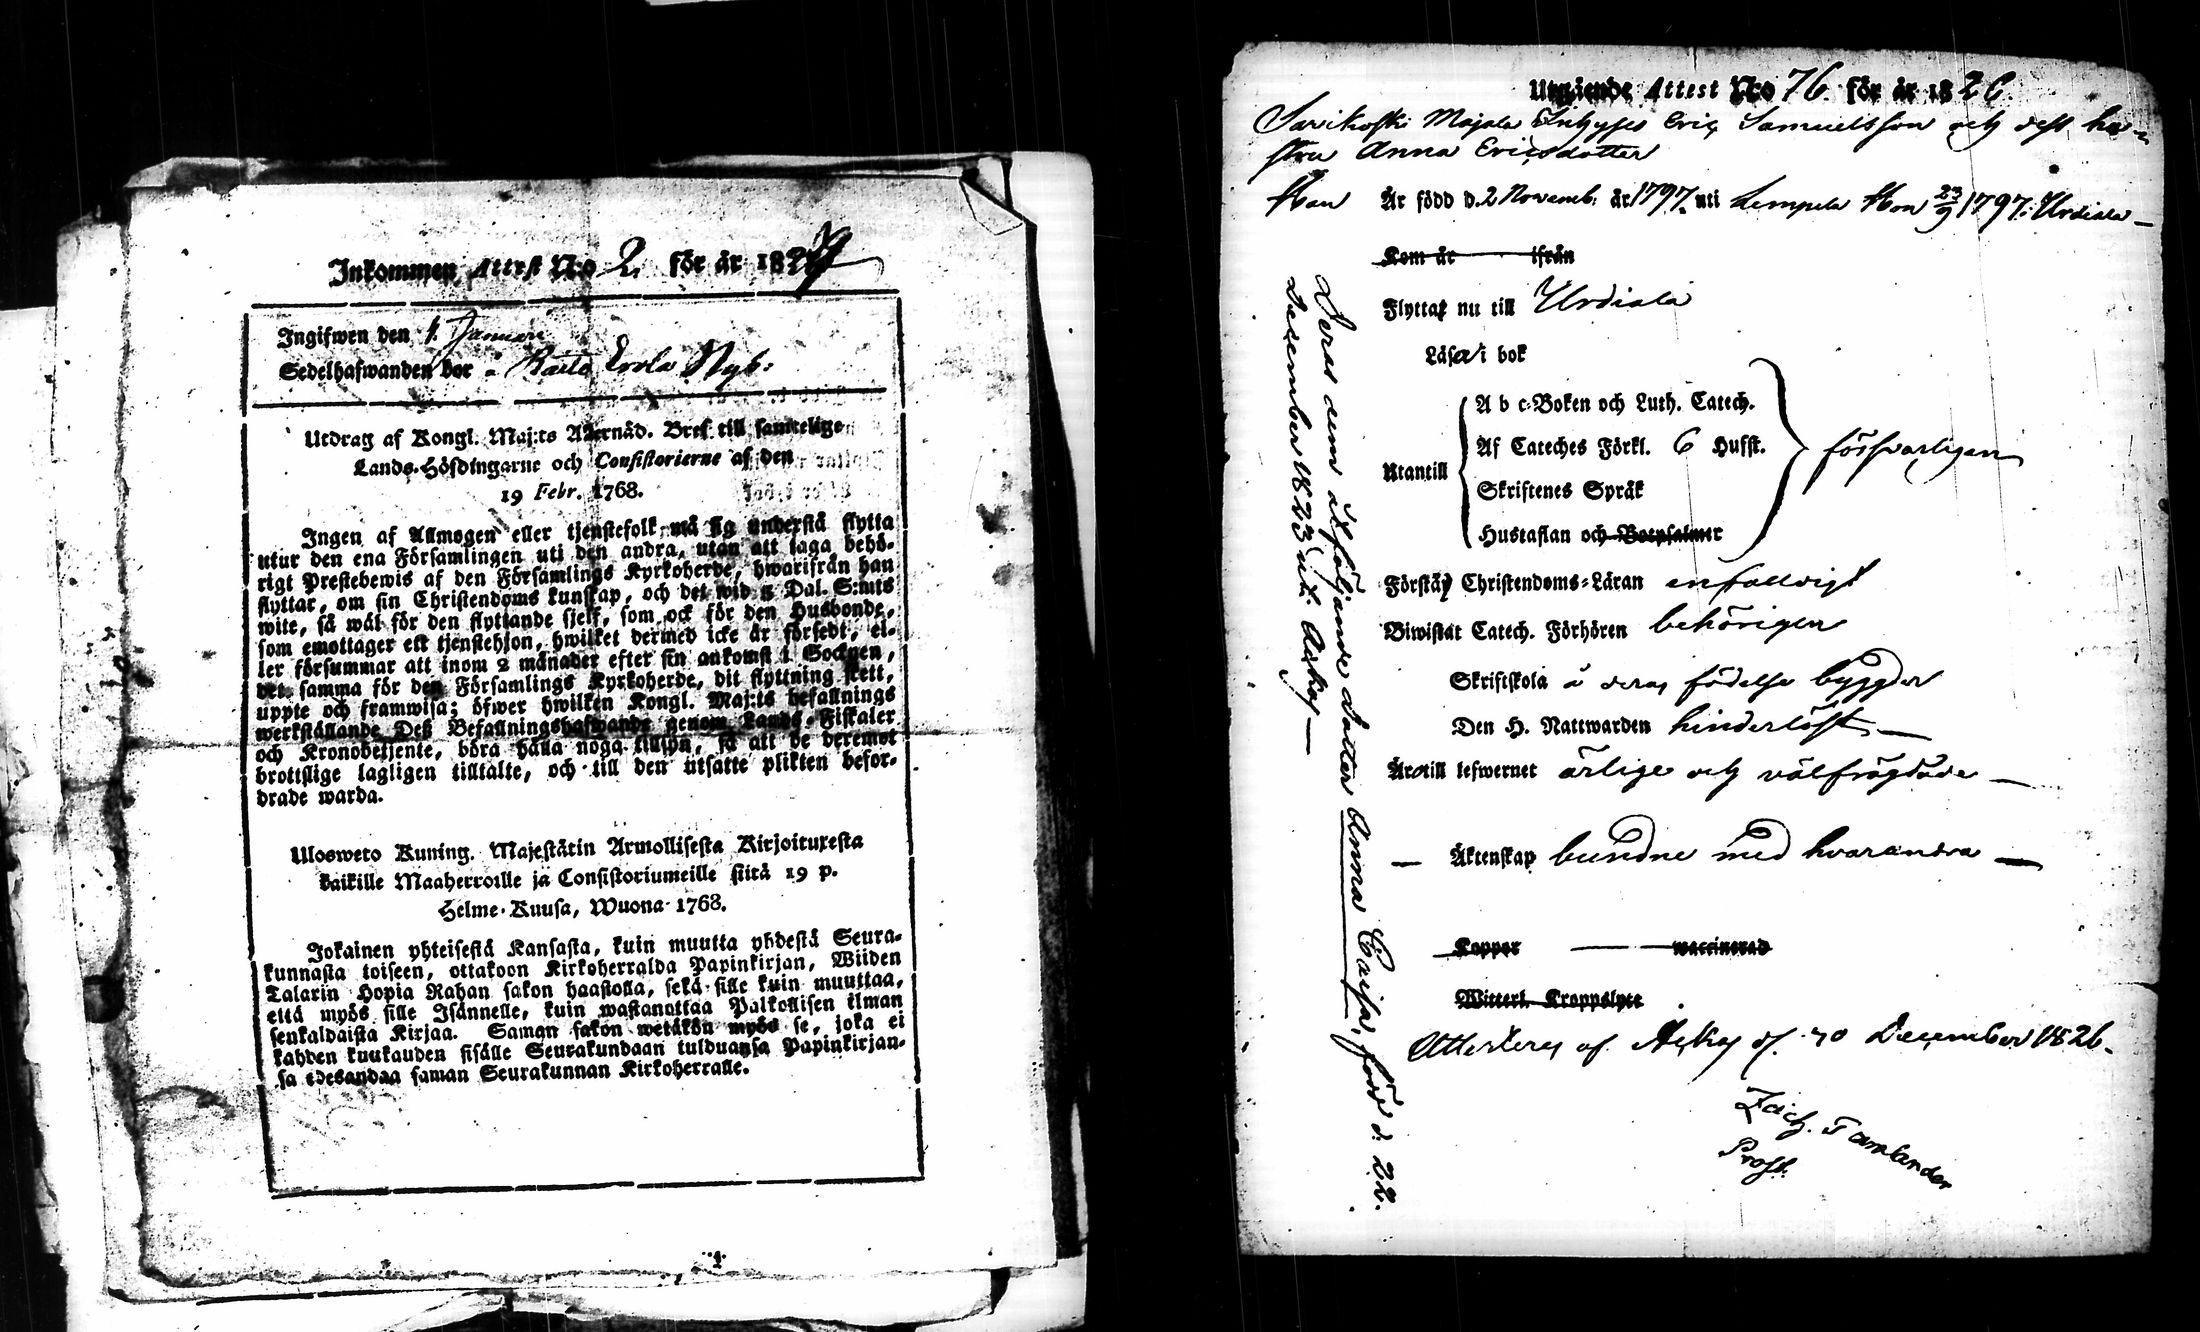 Inkommen Attest N:o 2. för år 1827
Ingifwen den 4. Januarii
Sedelhafwanden bor å Raito Erola Nyb:
Utdrag af Kongl. Maj:ts Allernåd. Bref till samtelige
Lands-Höfdingarne och Consistorierne af den
19 Febr. 1768.
Ingen af Allmogen eller tjenstefolk må sig understå flytta
utur den ena Församlingen uti den andra, utan att taga behö-
rigt Prestebewis af den Församlings Kyrkoherde, hwarifrån han
flyttar, om sin Christendoms kunskap, och det wid 5 Dal. S:mts
wite, så wäl för den flyttande sjelf, som ock för den Husbonde,
som emottager ett tjenstehjon, hwilket dermed icke är försedt, el-
ler försummar att inom 2 månader efter sin ankomst i Socknen,
det samma för den Församlings Kyrkoherde, dit flyttning skett,
uppte och framwisa; öfwer hwilken Kongl. Maj:ts befallnings
werkställande Deß Befallningshafwande genom Lands-Fiskaler
och Kronobetjente, böra hålla noga tillsyn, så att de deremot
brottslige lagligen tilltalte, och till den utsatte plikten befor-
drade warda.
Ulosweto Kuning. Majestätin Armollisesta Kirjoituxesta
kaikille Maaherroille ja Consistoriumeille siitä 19 p.
Helme-Kuusa, Wuona 1768.
Jokainen yhteisestä Kansasta, kuin muutta yhdestä Seura-
kunnasta toiseen, ottakoon Kirkoherralda Papinkirjan, Wiiden
Talarin Hopia Rahan sakon haastolla, sekä sille kuin muuttaa,
että myös sille Isännelle, kuin wastanottaa Palkollisen ilman
senkaldaista Kirjaa. Saman sakon wetäkön myös se, joka ei
kahden kuukauden sisälle Seurakundaan tulduansa Papinkirjan-
sa edesandaa saman Seurakunnan Kirkoherralle.
Utgående Attest N:o 76. för år 1826.
Sarikoski Majala Inhyses Eric Samuelsson och dess hu-
stru Anna Ericsdotter
Han Är född d. 2 Novemb. år 1797. uti Lempela Hon 23/9 1797. i Urdiala
Kom år ifrån
Flytta nu till Urdiala
Läsa i bok
Utantill
A b c-Boken och Luth. Catech.
Af Cateches Förkl. 6 Hufst.
Skriftenes Språk
Hustaflan och Botpsalmer
försvarligen
Förstå Christendoms-Läran enfalldigt
Biwistat Catech. Förhören behörigen
Skriftskola å deras födelse bygder
Den H. Nattwarden hinderlöst
Äro till lefwernet ärlige och välfrägdade
Äktenskap bundne med hvarandra
Koppor waccinerad
Witterl. Kroppslyte
Attesteras af Ackas d. 30 December 1826.
Zach. Tamlander
Prost.
Deras dem åtföljande dotter Anna Caisa, född d. 22.
December 1823 uti Ackas